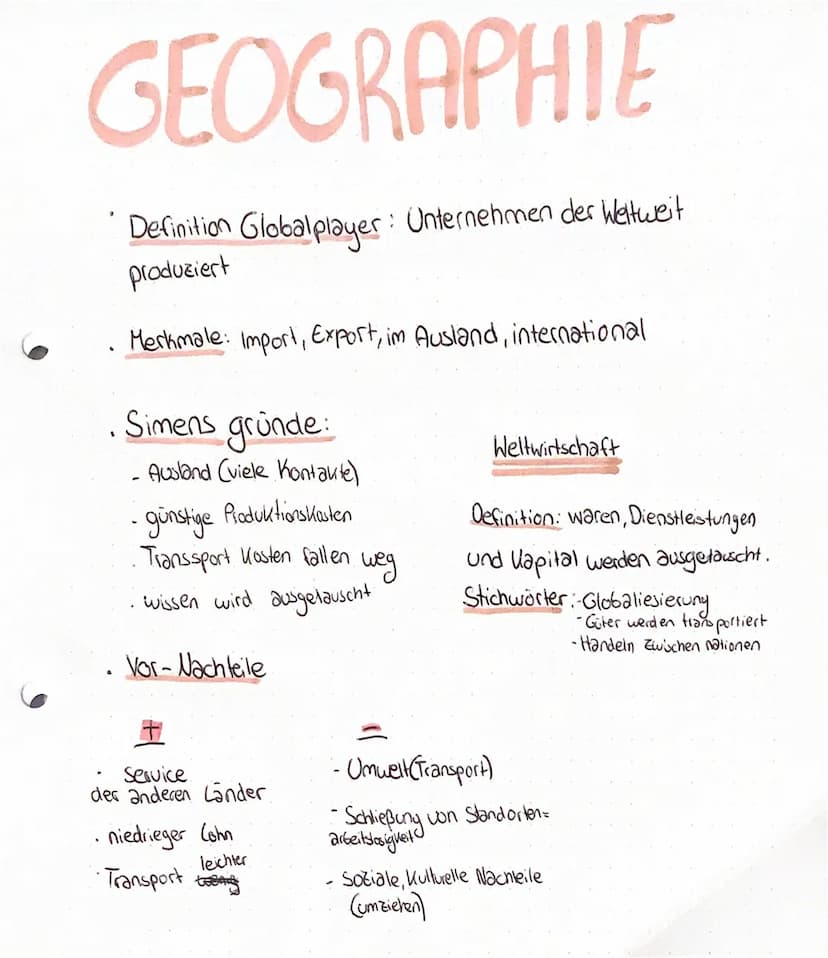 GEOGRAPHIE
· Definition Globalplayer: Unternehmen der Weltweit
produziert
· Merkmale: Import, Export, im Ausland, international
· Simens gründe:
- Ausland (viele Kontakte)
- günstige Produktionskosten
· Transsport Kosten fallen weg
· wissen wird ausgetauscht
Weltwirtschaft
Definition: waren, Dienstleistungen
und Kapital werden ausgetauscht.
Stichwörter: -Globaliesierung
- Güter werden transportiert
- Handeln zwischen nationen
· Vor-Nachteile
+
· Service
der anderen Länder
· niedrieger Lohn
· Transport leichter
-
- Umwelt(Transport)
- Schließung von Standorten=
arbeitslosigkeit
- Soziale, Kulturelle Nachteile
(umziehen)